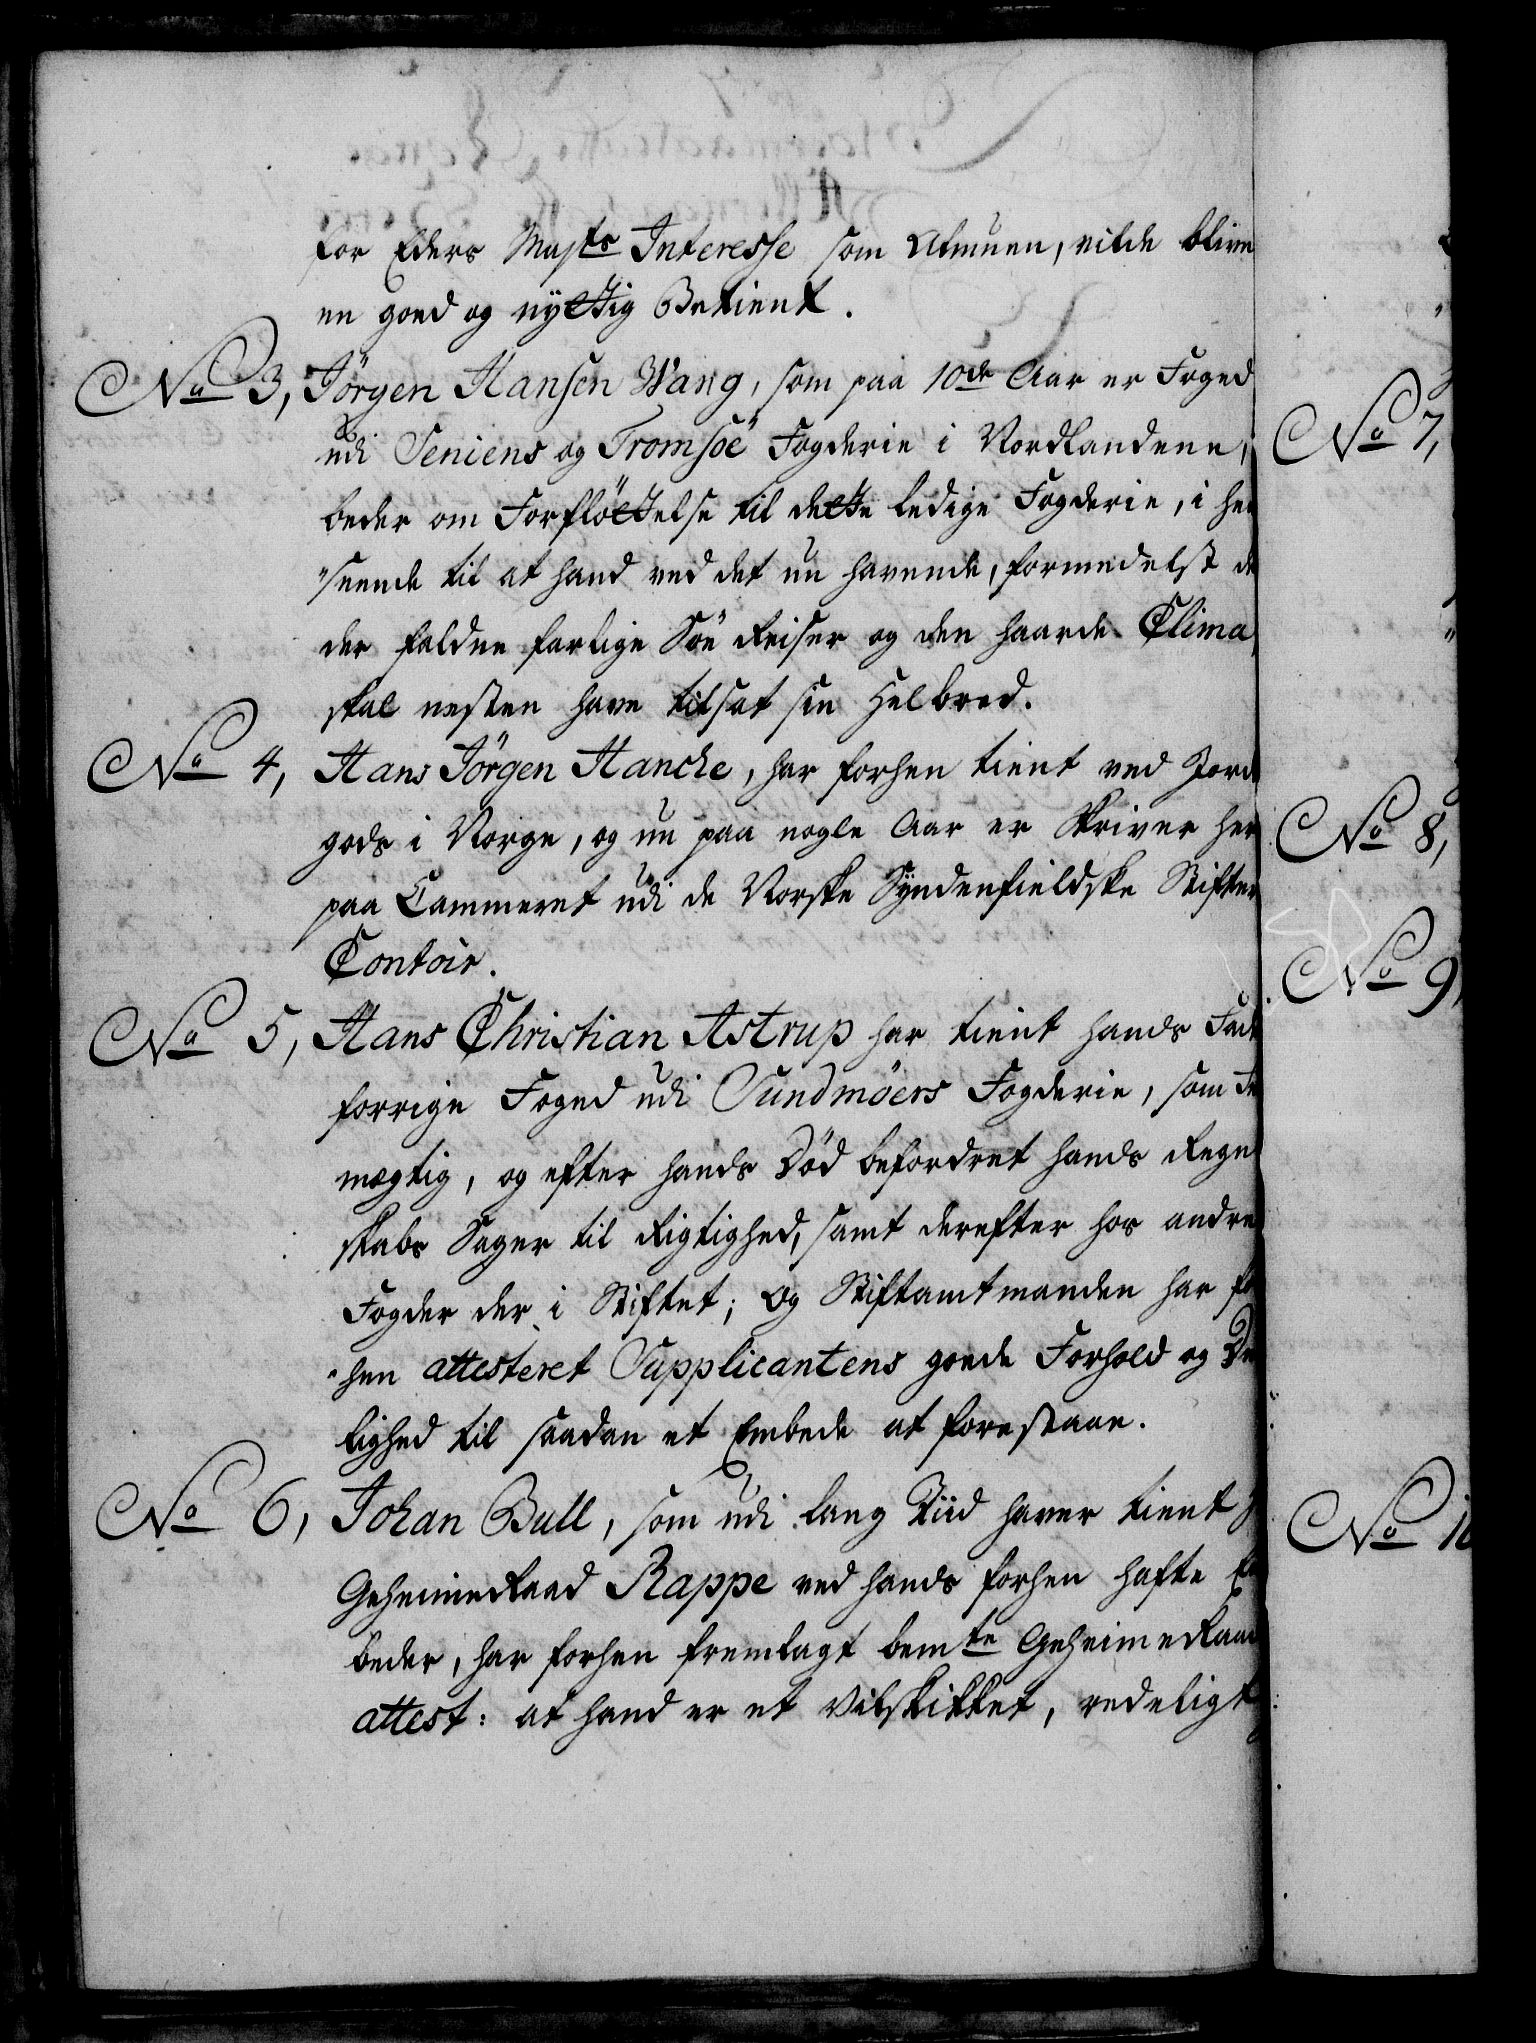 for Eders Majts Interesse som Almuen, vilde blive
en goed og nyttig Betient.
No 3, Jörgen Hansen Wang, som paa 10de Aar er Foged
udi Seniens og Tromsöe Fogderie i Nordlandene,
beder om Forflöttelse til dette ledige Fogderie, i hen
"seende til at hand ved det nu havende, formedelst de
der faldne farlige Söe Reiser og den haarde Clima
skal nesten have tilsat sin Helbred.
No 4, Hans Jörgen Hancke, har forhen tient ved Jorde
gods i Norge, og nu paa nogle Aar er Skriver her
paa Cammeret udi de Norske Syndenfieldske Stifters
Contoir.
No 5, Hans Christian Astrup har tient hands Fad
forrige Foged udi Sundmöers Fogderie, som Fu
mægtig, og efter hands Död befordret hands Regn
skabs Sager til Rigtighed, samt derefter hos andre
Fogder der i Stiftet; og Stiftamtmanden har for
"hen attesteret Supplicantens goede Forhold og Du
lighed til saadan et Embede at forestaae.
No 6, Johan Bull, som udi lang Tiid haver tient
Geheimeraad Rappe ved hands forhen hafte Em
beder, har forhen fremlagt bemte Geheimeraad
attest: at hand er et Vilskikket, redeligt
No 7,
No 8,
No 9,
No 10